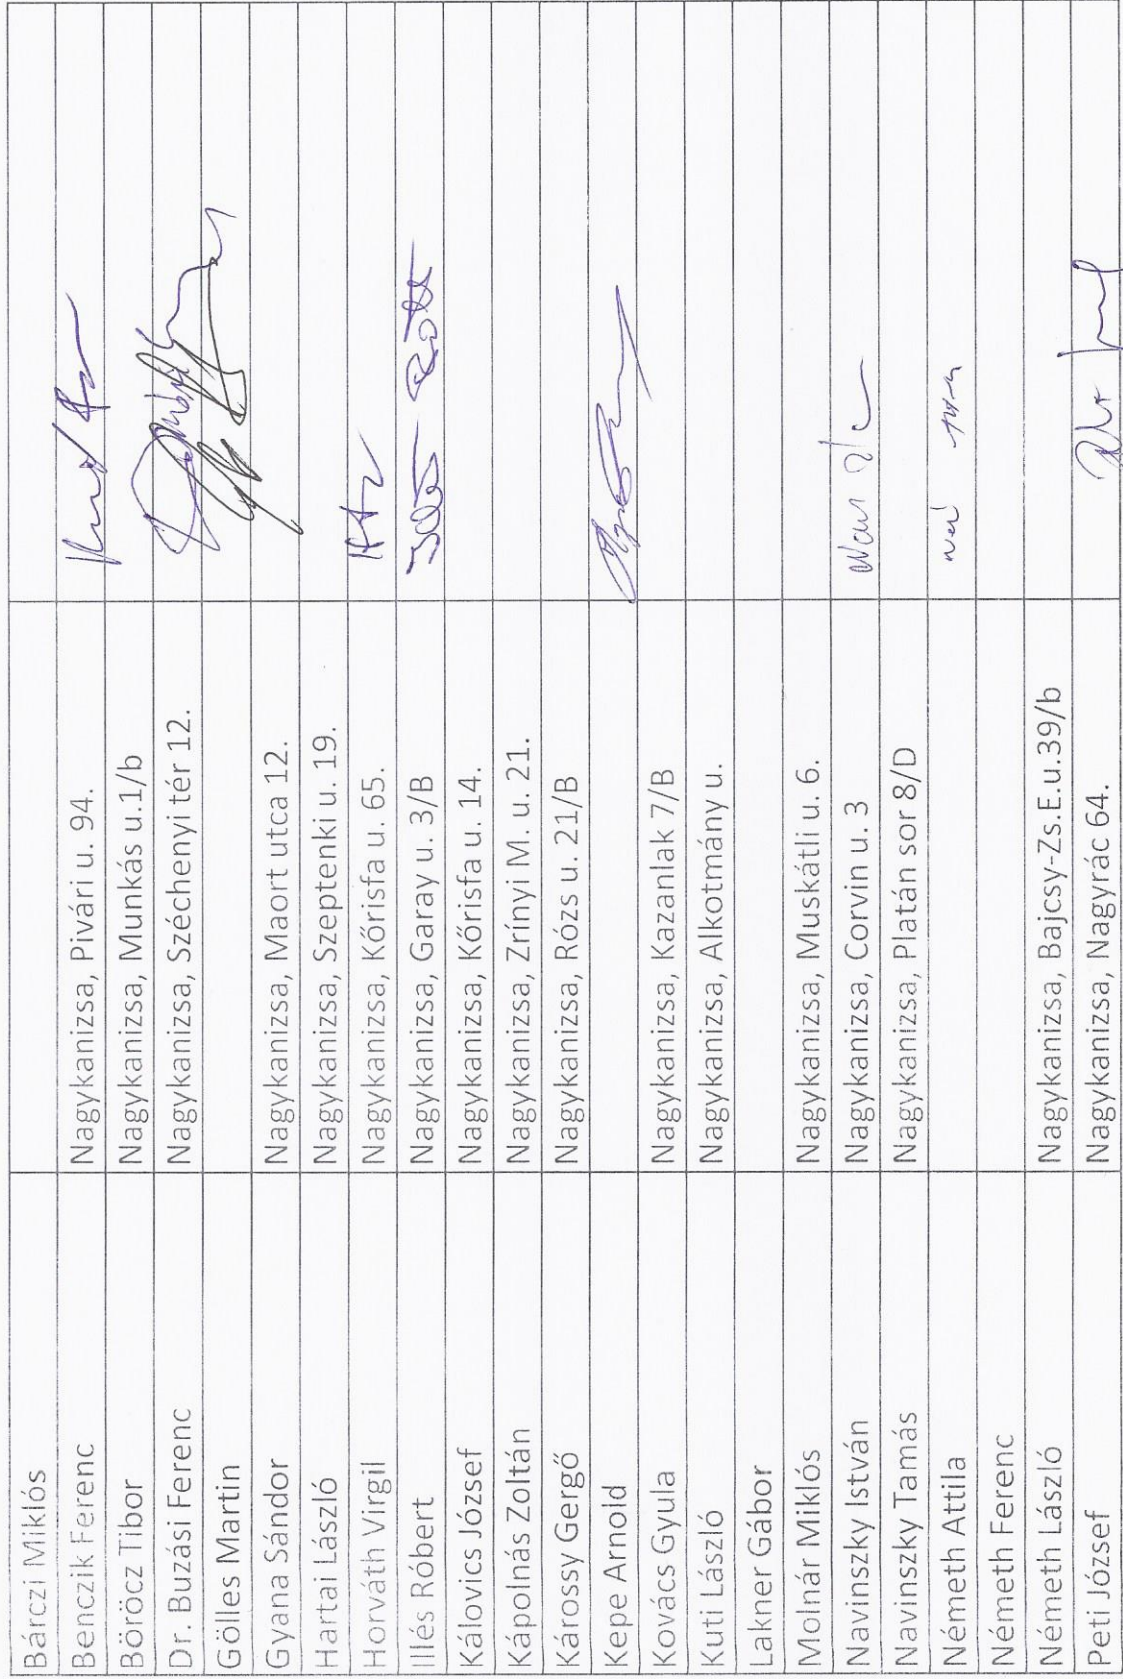 Bárczi Miklós
Benczik Ferenc Nagykanizsa, Pivári u. 94.
Böröcz Tibor Nagykanizsa, Munkás u.1/b
Dr. Buzási Ferenc Nagykanizsa, Széchenyi tér 12.
Gölles Martin
Gyana Sándor Nagykanizsa, Maort utca 12.
Hartai László Nagykanizsa, Szeptenki u. 19.
Horváth Virgil Nagykanizsa, Kőrisfa u. 65.
Illés Róbert Nagykanizsa, Garay u. 3/B
Kálovics József Nagykanizsa, Kőrisfa u. 14.
Kápolnás Zoltán Nagykanizsa, Zrínyi M. u. 21.
Károssy Gergő Nagykanizsa, Rózs u. 21/B
Kepe Arnold
Kovács Gyula Nagykanizsa, Kazanlak 7/B
Kuti László Nagykanizsa, Alkotmány u.
Lakner Gábor
Molnár Miklós Nagykanizsa, Muskátli u. 6.
Navinszky István Nagykanizsa, Corvin u. 3
Navinszky Tamás Nagykanizsa, Platán sor 8/D
Németh Attila
Németh Ferenc
Németh László Nagykanizsa, Bajcsy-Zs.E.u.39/b
Peti József Nagykanizsa, Nagyrác 64.